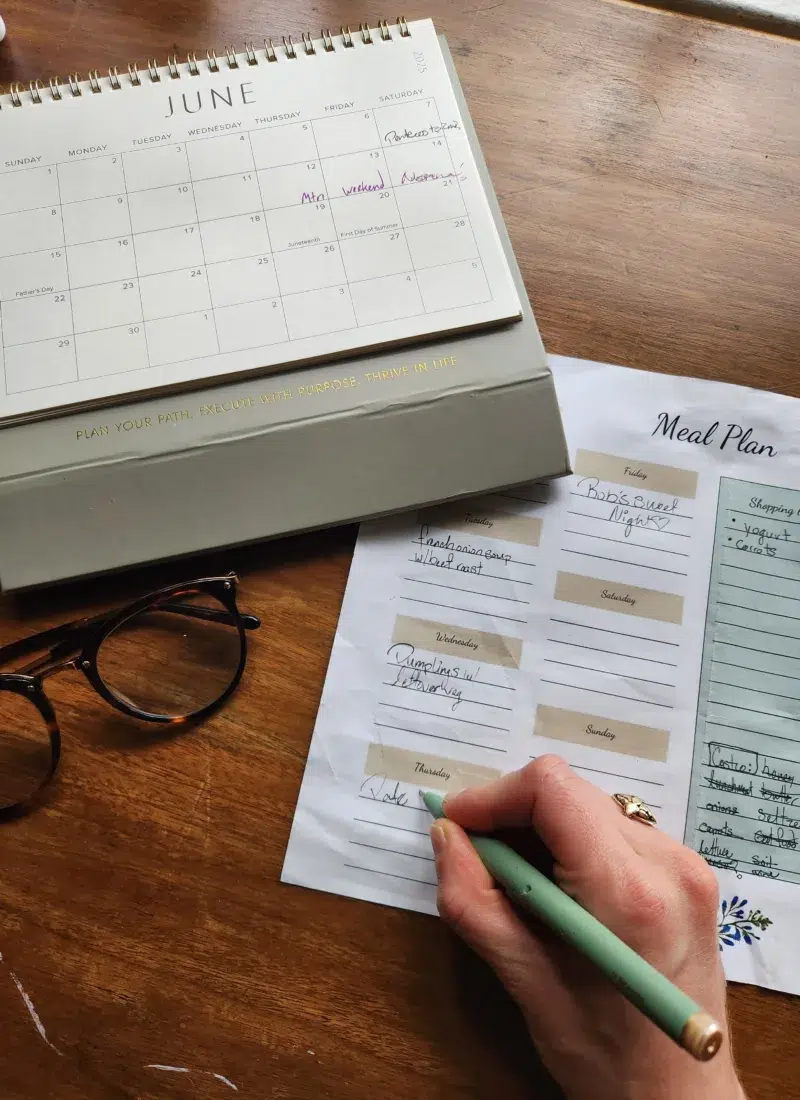 2025
JUNE
SUNDAY MONDAY TUESDAY WEDNESDAY THURSDAY FRIDAY SATURDAY
1 2 3 4 5 6 7
8 9 10 11 12 13 14
Mtn weekend
15 16 17 18 19 20 21
Father's Day Juneteenth First Day of Summer
22 23 24 25 26 27 28
29 30 1 2 3 4 5
PLAN YOUR PATH, EXECUTE WITH PURPOSE, THRIVE IN LIFE
Meal Plan
Tuesday
french onion soup
w/ beef roast
Wednesday
Dumplings w/
Thursday
Date
Friday
Bob's Sweet
Night♡
Saturday
Sunday
Shopping
• yogurt
• carrots
Costco: honey
onions
carrots
lettuce